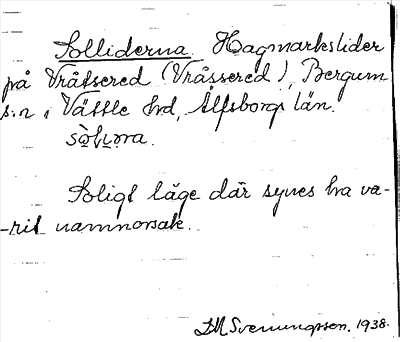 Solliderna. Hagmarkslider
på Vråtsered (Vråssered), Bergum
s:n, Vättle hrd, Älfsborgs län.
Soligt läge där synes ha va-
-rit namnorsak.
Svenungsson. 1938.